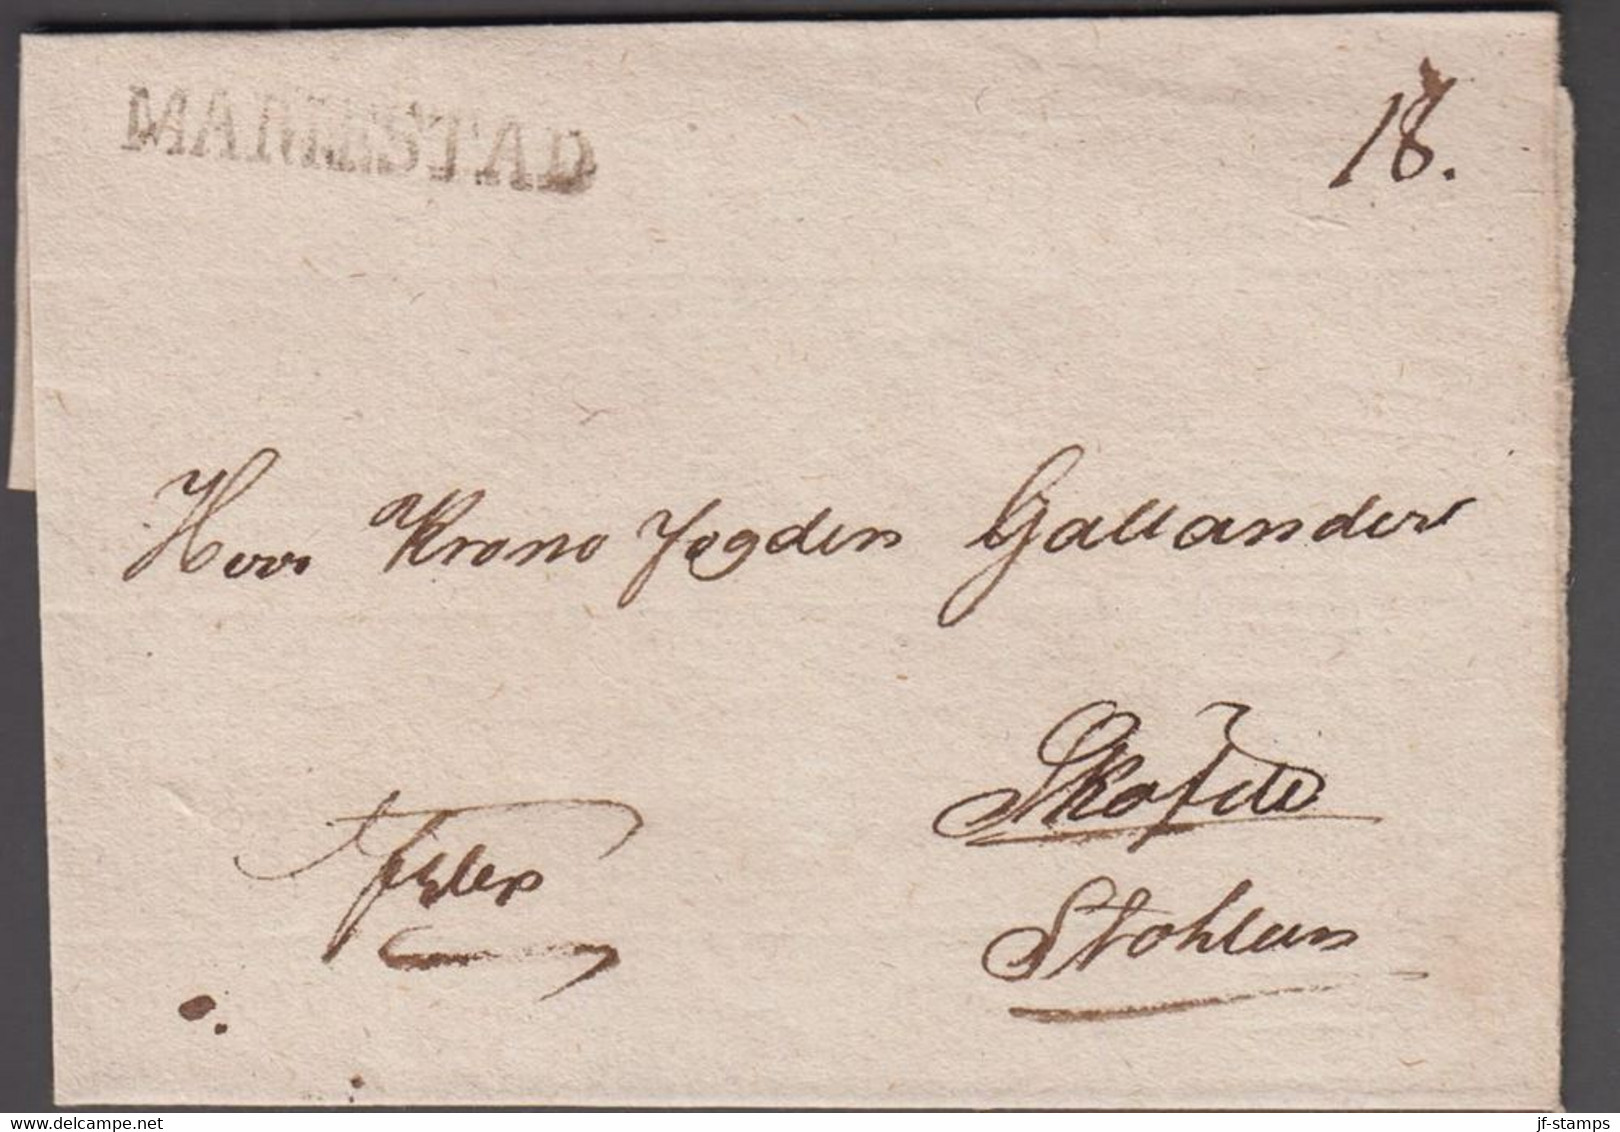 MARIESTAD
18.
Herr Krono Fogden Gallander
Sköfde
Stohlan
delcampe.net
jf-stamps